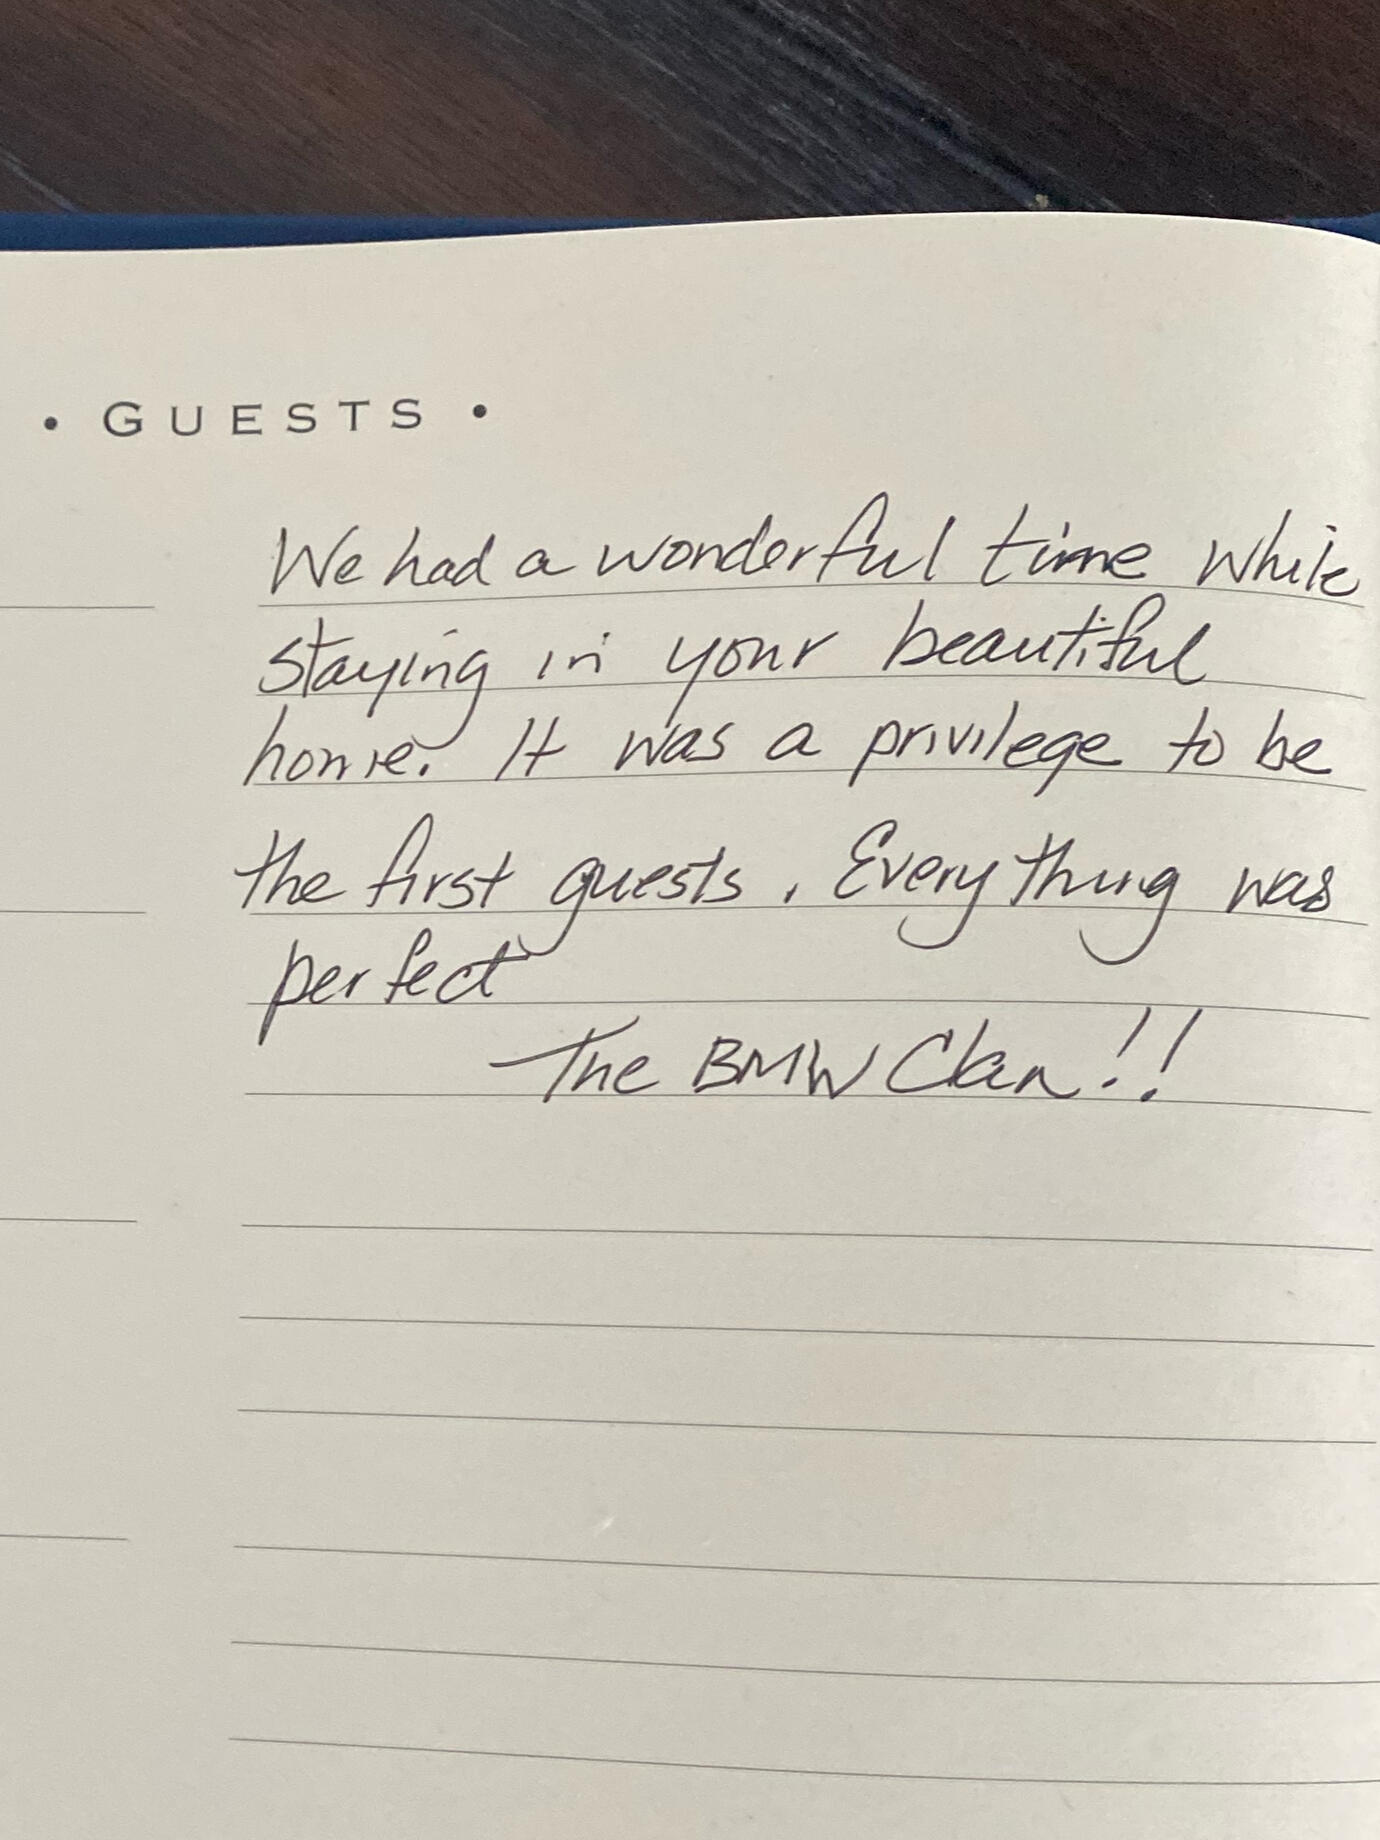 • GUESTS •
We had a wonderful time while
staying in your beautiful
home. It was a privilege to be
the first guests. Everything was
perfect
The BMW Clan!!